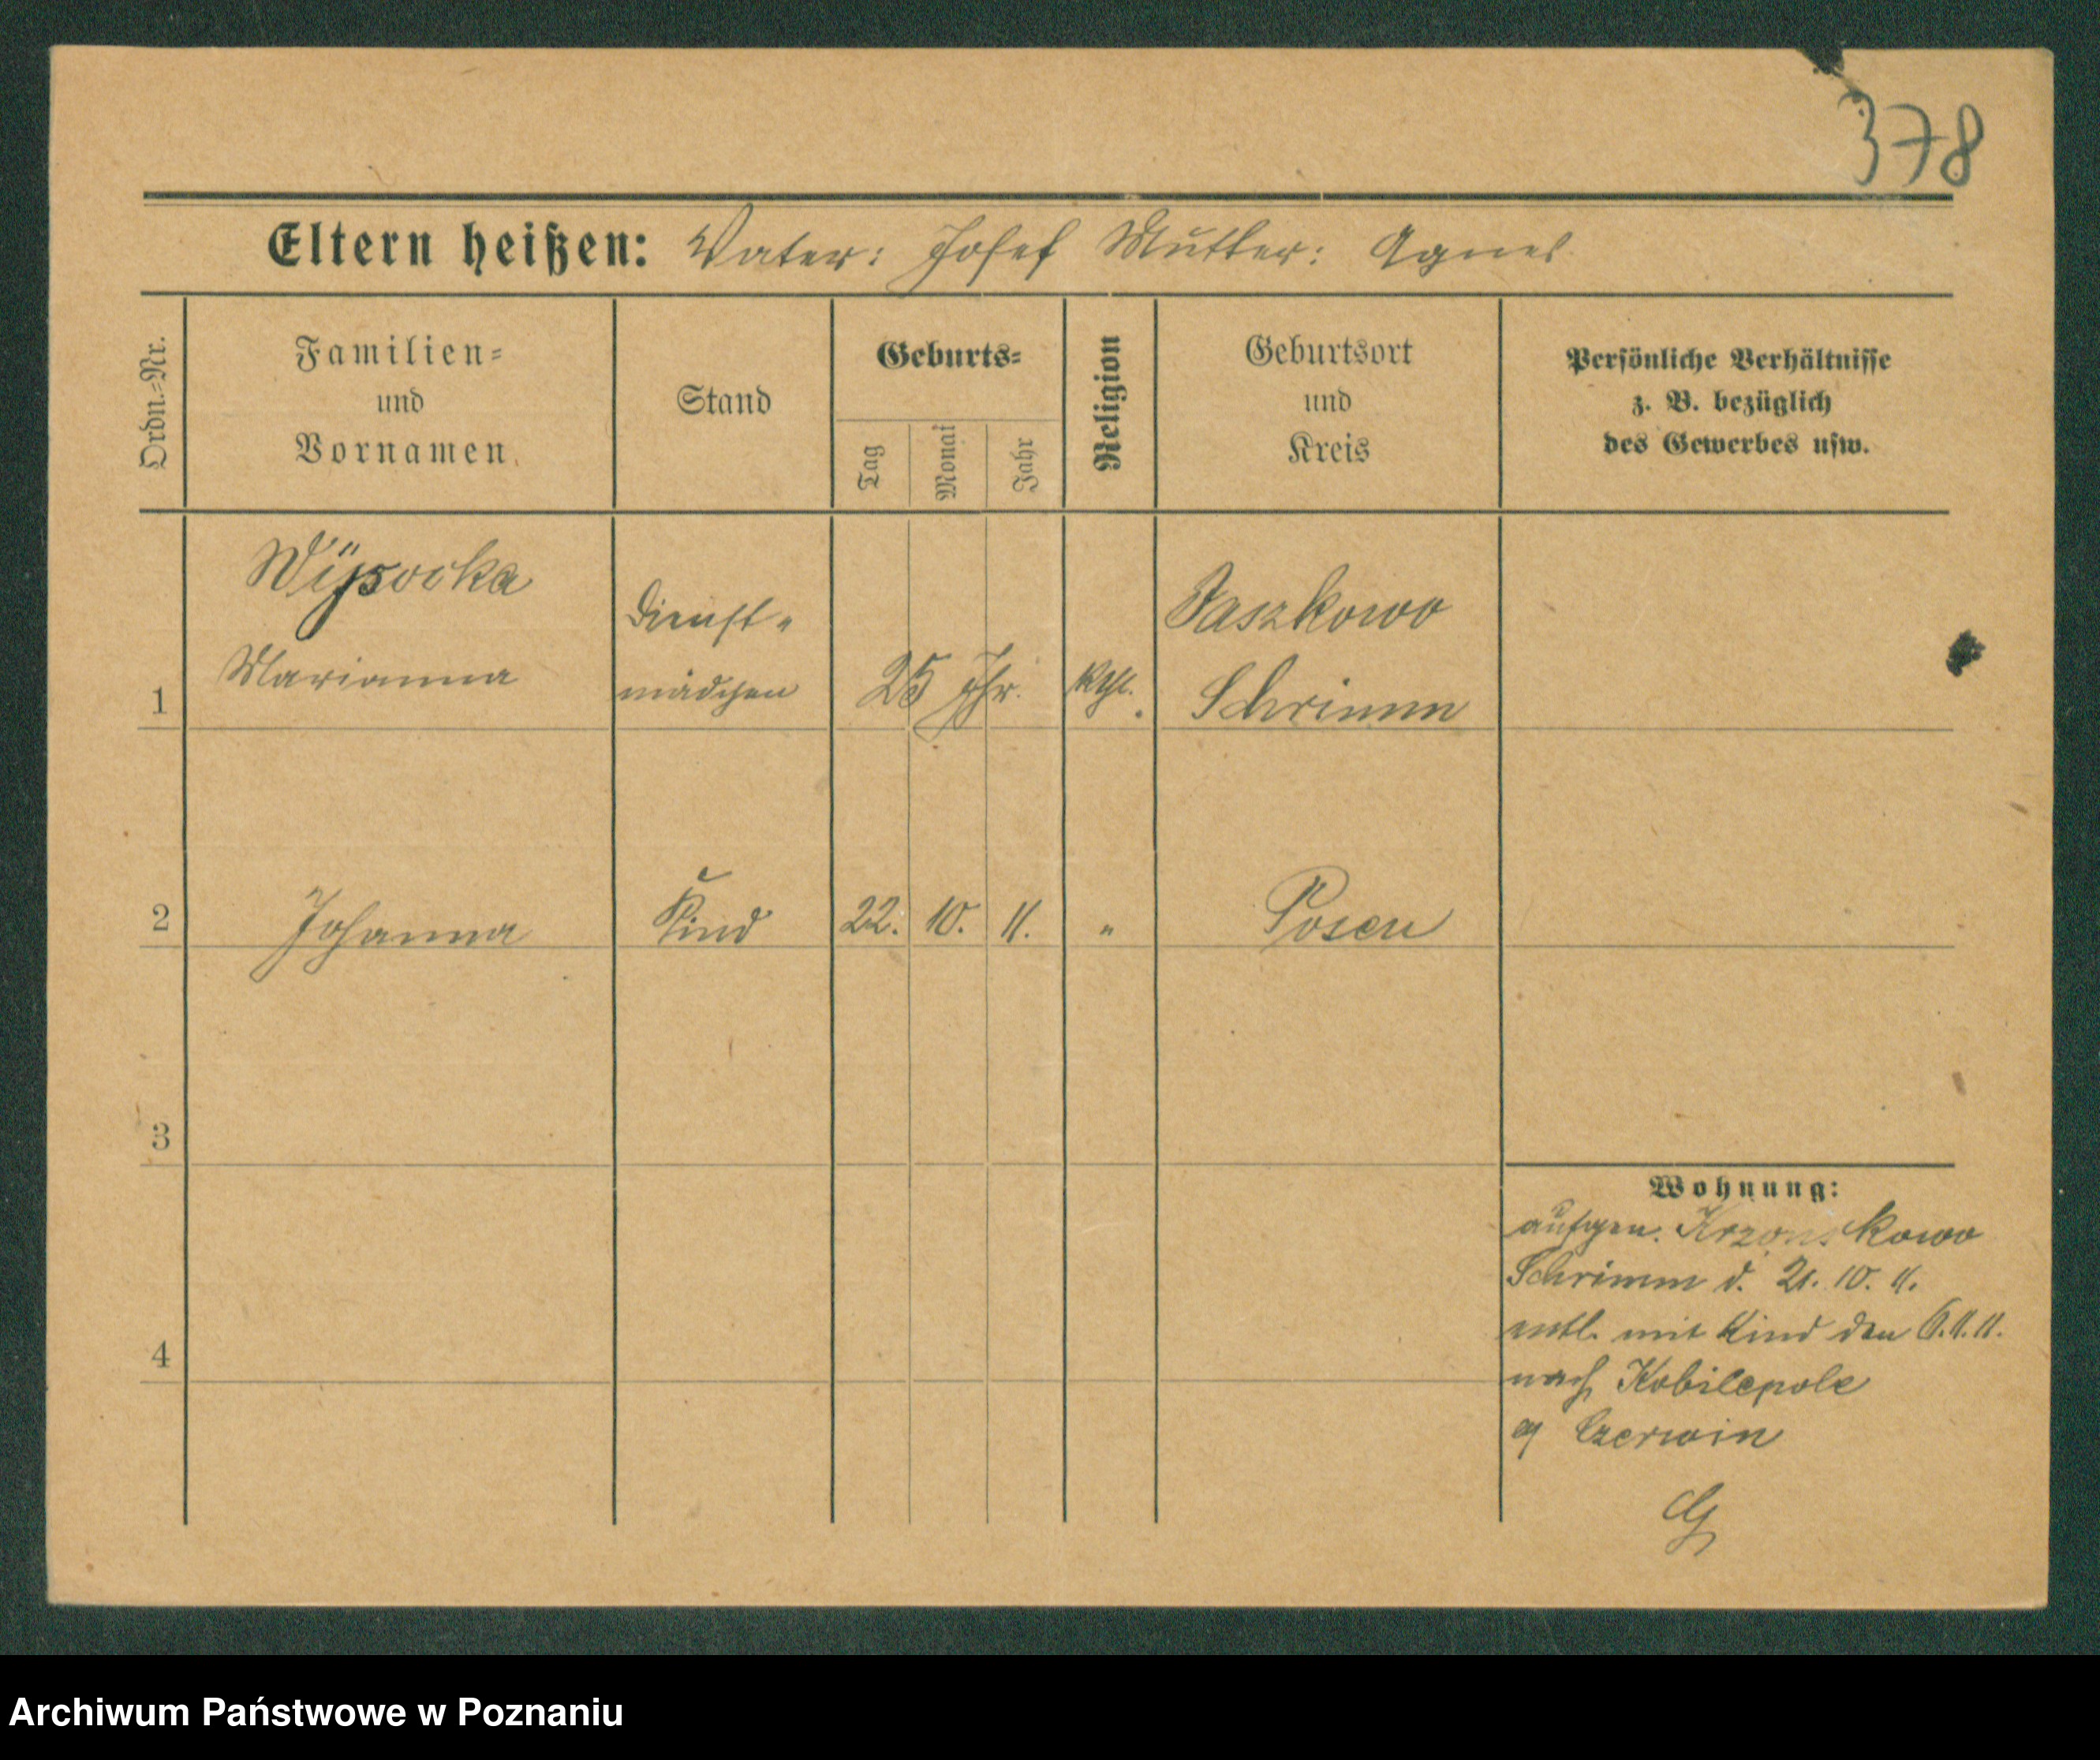 378
Eltern heißen: Vater: Josef Mutter: Agnes
Ordn.-Nr.
Familien-
und
Vornamen
Stand
Geburts-
Tag
Monat
Jahr
Religion
Geburtsort
und
Kreis
Persönliche Verhältnisse
z. B. bezüglich
des Gewerbes usw.
1
Wÿsocka
Marianna
Dienst-
mädchen
25 Jhr.
kth.
Jaszkowo
Schrimm
2 Johanna Kind 22. 10. 11. " Posen
3
4
Wohnung:
aufgen.
Schrimm d. 21. 10. 11.
entl. mit Kind den 6.11.11.
nach Kobilepole
Czerwin
Archiwum Państwowe w Poznaniu